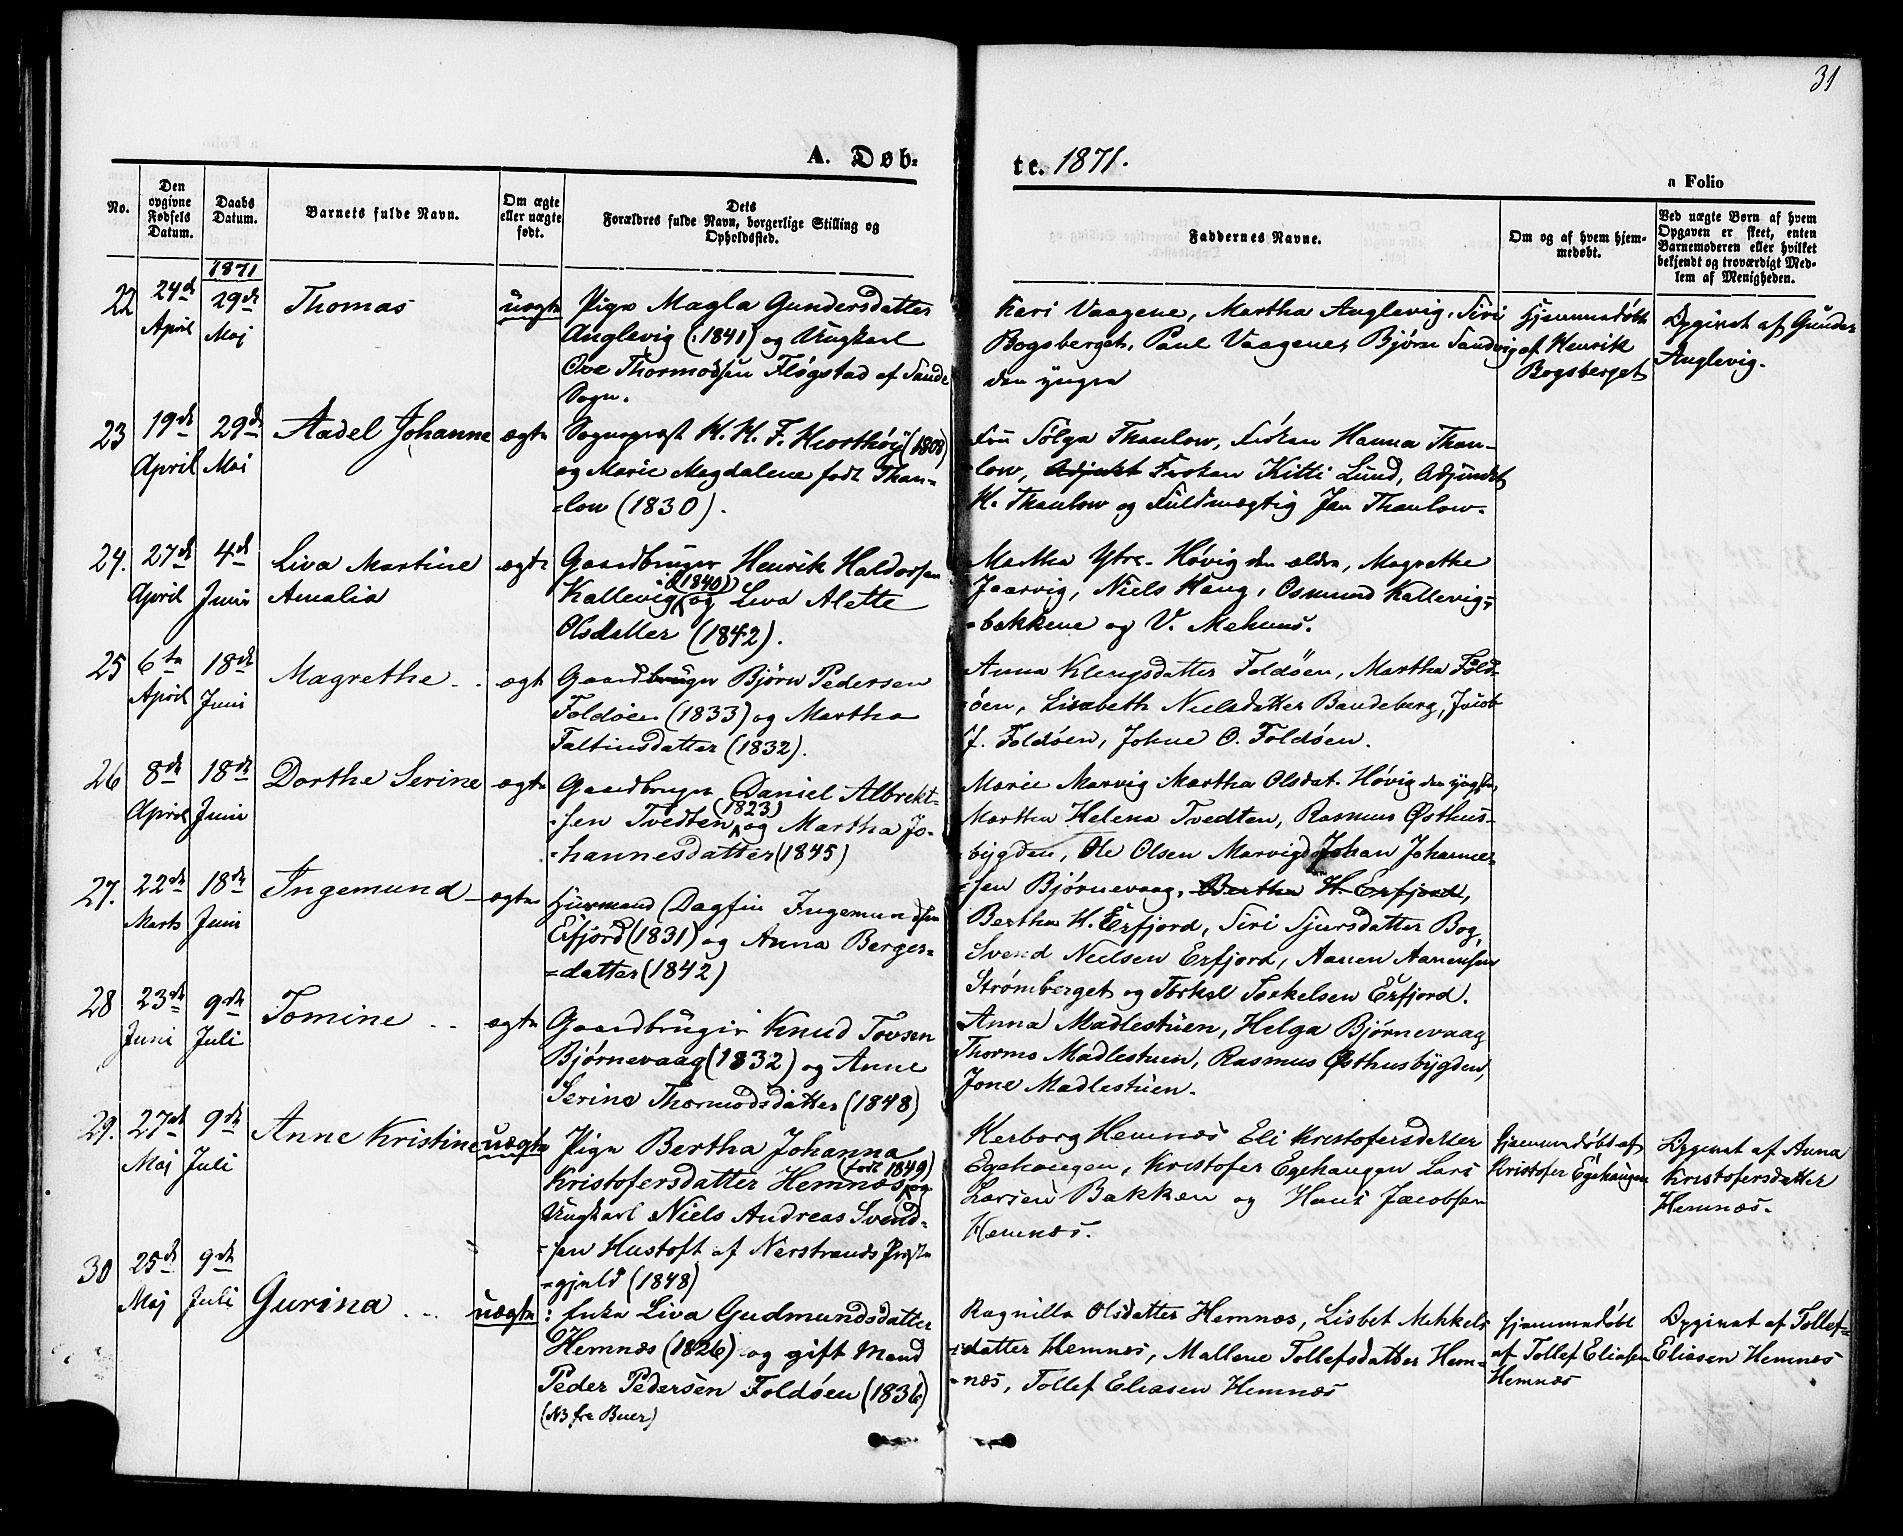 31
A. Døb-
te. 1871.
a Folio
No.
Den opgivne Fødsels Datum.
Daabs Datum.
Barnets fulde Navn.
Om ægte eller uægte født.
Dets Forældres fulde Navn, borgerlige Stilling og Opholdssted.
Faddernes Navne.
Om og af hvem hjemmedøbt.
Ved uægte Børn af hvem Opgaven er skeet, enten Barnemoderen eller hvilket bekjendt og troværdigt Medlem af Menigheden.
1871
22 24de April 29de Maj Thomas uægte
Pige Magla Gundersdatter
Anglevig (1841) og Ungkarl
Ove Thormodsen Fløgstad af Sande
Sogn.
Kari Vaagene, Martha Anglevig, Siri
Bogsberget, Paul Vaagene, Bjørn Sandvig
den yngre
Hjemmedøbt
af Henrik
Bogsberget
Opgivet af Gunder
Anglevig.
23 19de April 29de Maj Aadel Johanne ægte
Sogneprest H. H. F. Hiorthøy (1808)
og Marie Magdalene født Thau-
-low (1830).
Fru Sølga Thaulow, Frøken Hanna Thau-
-low, Adjunkt Frøken Kitti Lund, Adjunkt
H. Thaulow og Fuldmægtig Jan Thaulow.
24. 27de April 4de Juni Liva Martine Amalia ægte
Gaardbruger Henrik Haldorsen
Kallevig (1840) og Liva Alette
Olsdatter (1842).
Martha Ytre-Høvig den ældre, Magrethe
Jaarvig, Niels Haug, Osmund Kallevig-
-bakkene og V. Mehuus.
25 6te April 18de Juni Magrethe ægte
Gaardbruger Bjørn Pedersen
Foldøen (1833) og Martha
Faltinsdatter (1832).
Anna Klengsdatter Foldøen, Martha Fold-
øen, Lisabeth Nielsdatter Bandeberg, Jacob
J. Foldøen, Johne O. Foldøen.
26 8de April 18de Juni Dorthe Serine ægte
Gaardbruger Daniel Albrekt-
-sen Tvedten (1823) og Martha Jo-
-hannesdatter (1845)
Marie Marvig Martha Olsdat. Høvig den yngste,
Martha Helena Tvedten, Rasmus Østhus-
bygden, Ole Olsen Marvig Johan Johanne-
-sen Bjørnevaag, Bertha H. Erfjord,
27. 22de Marts 18de Juni Ingemund ægte
Huusmand Dagfin Ingemundsen
Erfjord (1831) og Anna Berges-
-datter (1842)
Bertha H. Erfjord, Siri Sjursdatter Bog,
Svend Nielsen Erfjord, Aanen Aanensen
Strømberget og Torkel Torkelsen Erfjord.
28 23de Juni 9de Juli Tomine ægte
Gaardbruger Knud Tovsen
Bjørnevaag (1832) og Anne
Serine Thormodsdatter (1848)
Anna Madlestuen, Helga Bjørnevaag
Thormo Madlestuen, Rasmus Østhusbygden,
Jone Madlestuen.
29. 27de Maj 9de Juli Anne Kristine uægte
Pige Bertha Johanna
Kristofersdatter Hemnæs (født 1849) og
Ungkarl Niels Andreas Svend-
-sen Hustoft af Nerstrands Præste
-gjeld (1848)
Herborg Hemnæs Eli Kristofersdatter
Egehaugen, Kristofer Egehaugen Lars
Larsen Bakken og Hans Jacobsen
Hemnæs.
Hjemmedøbt af
Kristofer Egehaugen
Opgivet af Anna
Kristofersdatter
Hemnæs.
30 25de Maj 9de Juli Gurina uægte
: Enke Liva Gudmundsdatter
Hemnæs (1826) og gift Mand
Peder Pedersen Foldøen (1836)
(NB fra Buer)
Ragnilla Olsdatter Hemnæs, Lisbet Mikkels-
datter Hemnæs, Mallene Tollefsdatter Hem-
-næs, Tollef Eliasen Hemnæs
Hjemmedøbt
af Tollef Eliasen
Hemnæs
Opgivet af Tollef
Eliasen Hemnæs